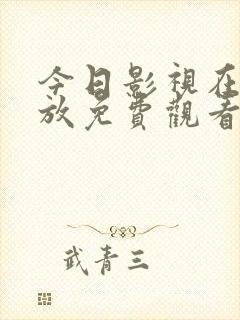 今日影視在
放免費觀看
武青三